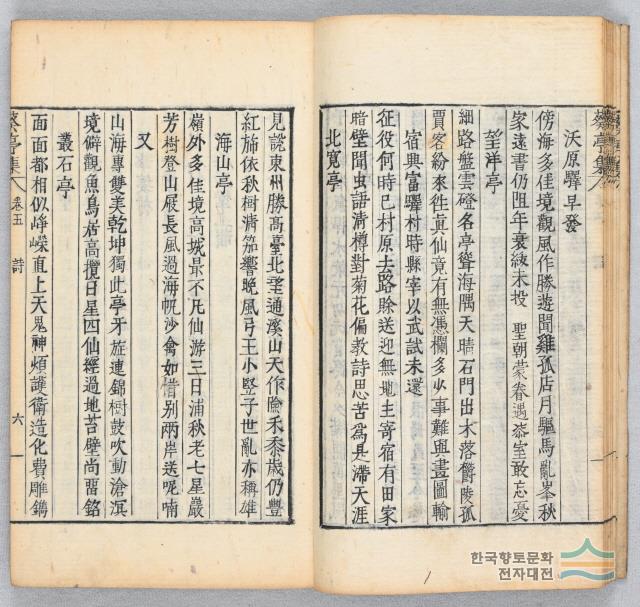 沃原驛早發
傍海多佳境觀風作勝遊聞雞孤店月驅馬亂峯秋
家遠書仍阻年衰紱未投 聖朝蒙眷遇漆室敢忘憂
望洋亭
細路盤雲磴名亭聳海隅天晴石門出木落欝陵孤
賈客紛來往眞仙竟有無憑欄多少事難興畫圖輸
宿興富驛村時縣宰以武試未還
征役何時已村原土路賒送迎無地主寄宿有田家
暗壁聞虫語清樽對菊花偏教詩思苦爲是滯天涯
北寛亭
見說東州勝高臺北望通溪山天作險禾黍歲仍豐
紅旆依秋樹清笳響晚風弓王小竪子世亂亦稱雄
海山亭
嶺外多佳境高城最不凡仙游三日浦秋老七星巖
芳樹登山屐長風過海帆沙禽如惜别兩岸送呢喃
又
山海專雙美乾坤獨此亭牙旌連錦樹鼓吹動滄溟
境僻觀魚鳥居高攬日星四仙經過地苔壁尚留銘
叢石亭
面面都相似崢嶸直上天鬼神煩護衛造化費雕鐫
亭集 卷五 詩 六
한국향토문화
전자대전